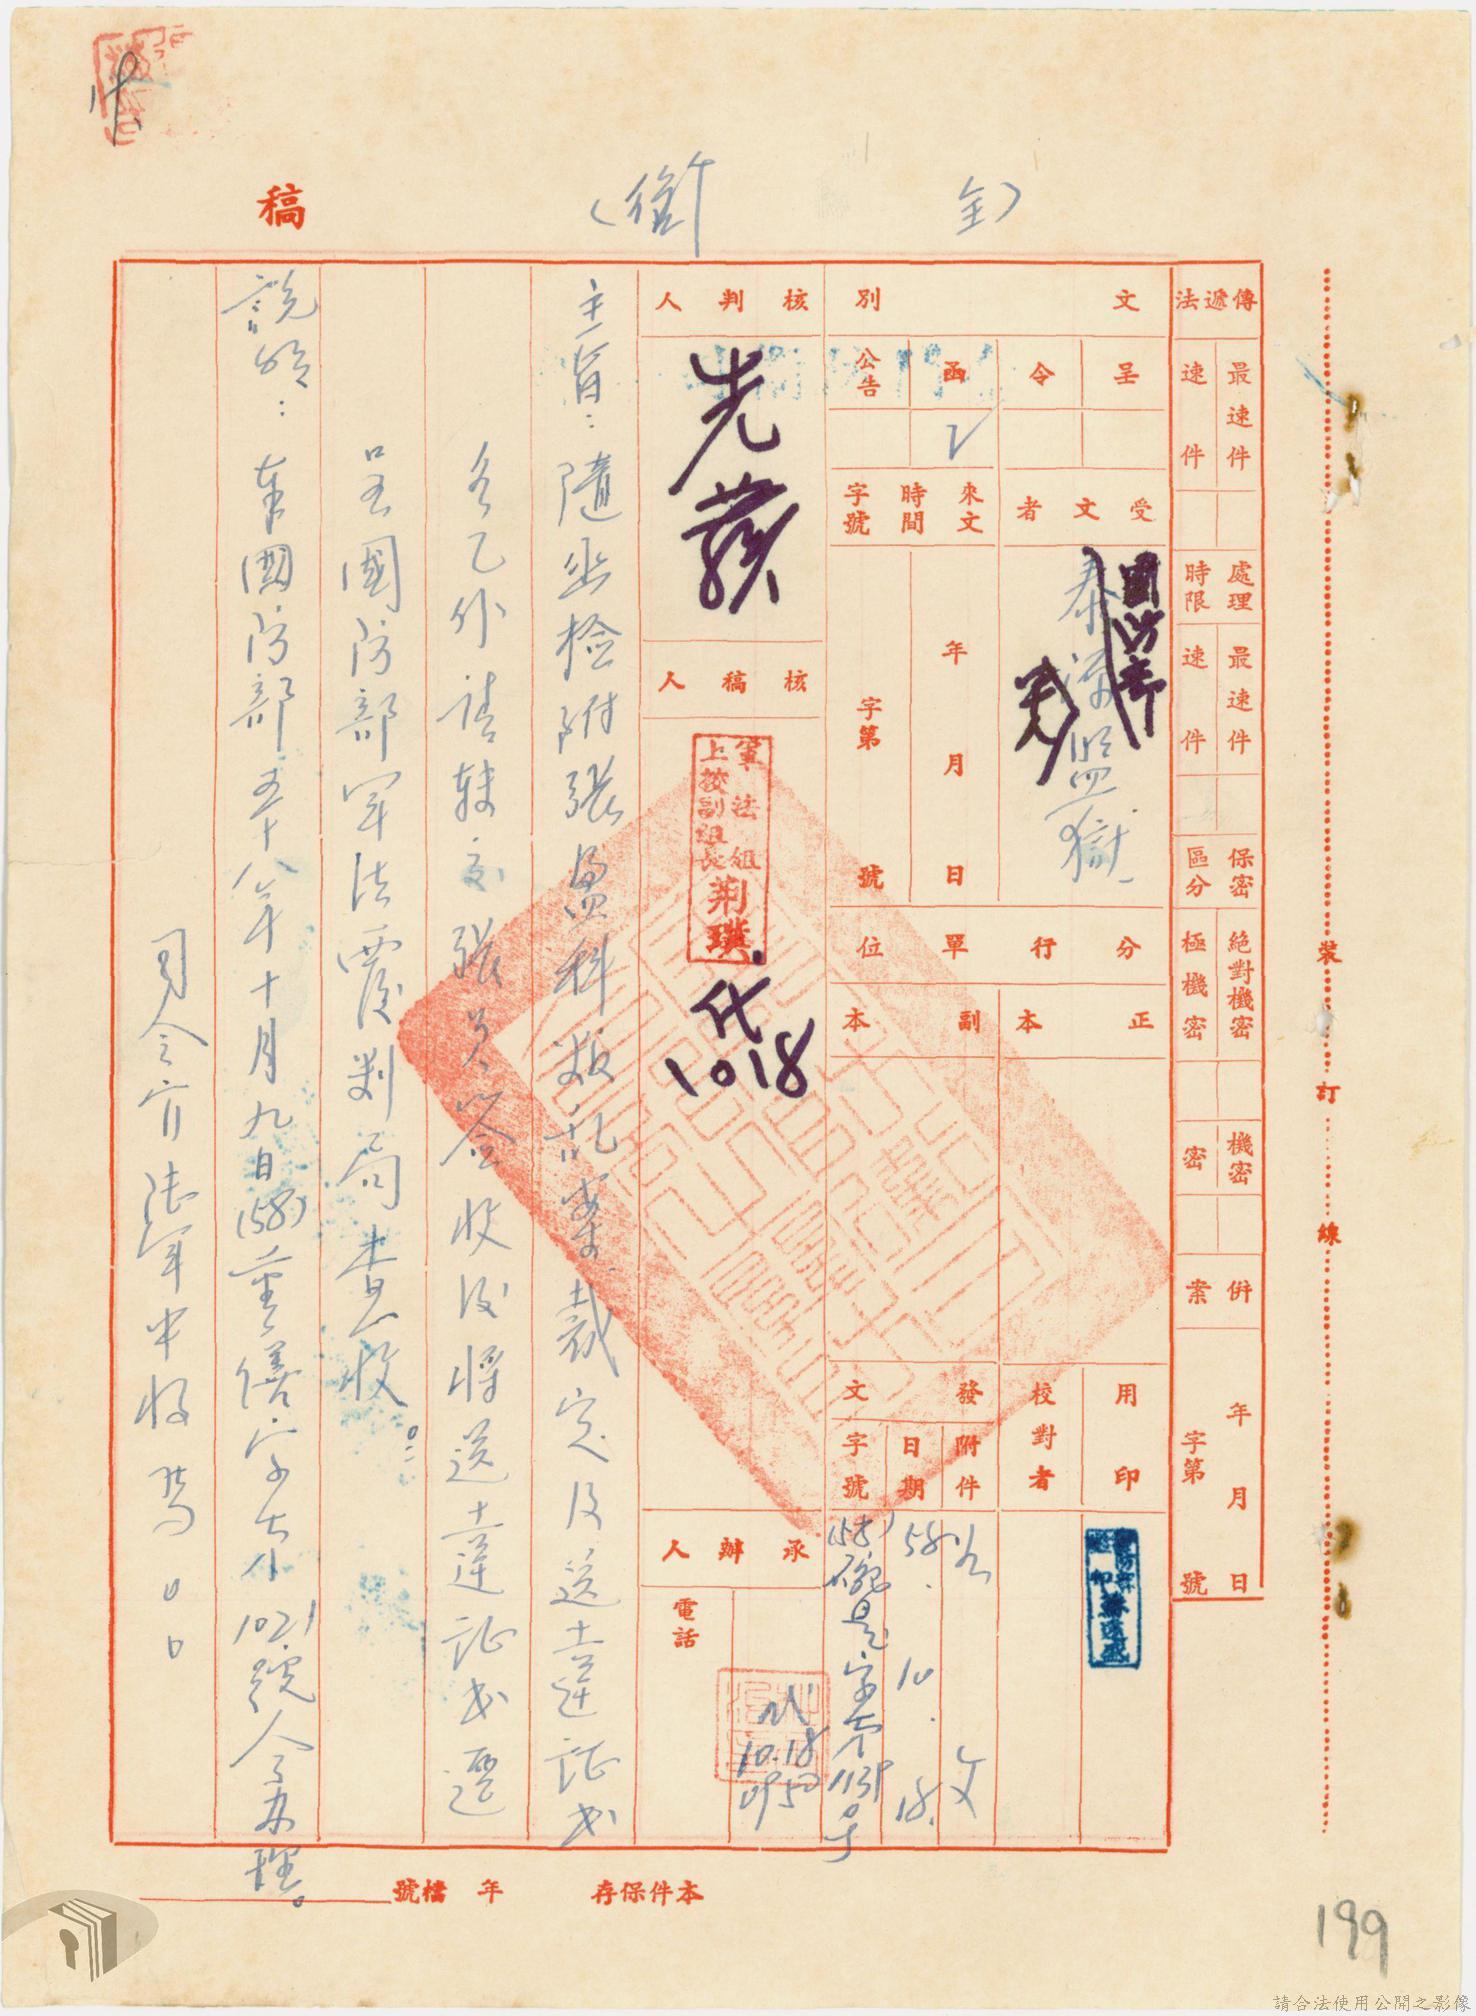 稿
(全銜)
傳遞法
最速件
速件
處理時限
最速件
速件
保密區分
絕對機密
極機密
機密
密
併案
年月日
字第號
文別
呈
令
函
公告
受文者
國防部
泰源監獄
來文
時間
字號
年月日
字第號
分行單位
正本
副本
用印
校對者
發文
附件
日期
58.10.18.
字號
核判人
核稿人
軍法組
上校副組長 荆璞
代
1018
承辦人
電話
10.18
0950
主旨：隨函檢附張盈科叛乱案裁定及送達証书
各乙件請轉交張員簽收後將送達証书逕
呈國防部軍法覆判局查收。
說明：奉國防部五十八年十月九日(58)
字第1021號令办理。
司令官陸軍中將
裝
訂
線
本件保存 年 檔號
199
請合法使用公開之影像